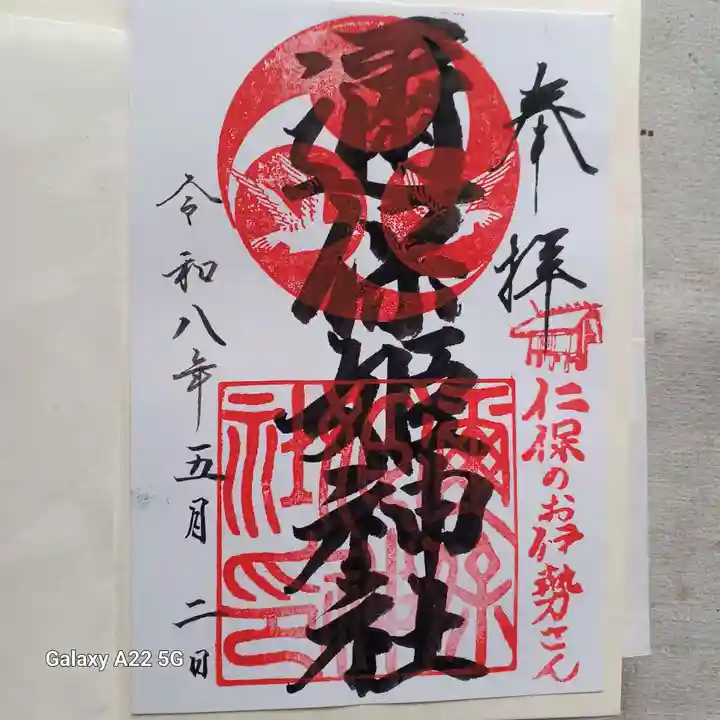 奉拝
仁保のお伊勢さん
邇保姫神社
令和八年五月二日
Galaxy A22 5G